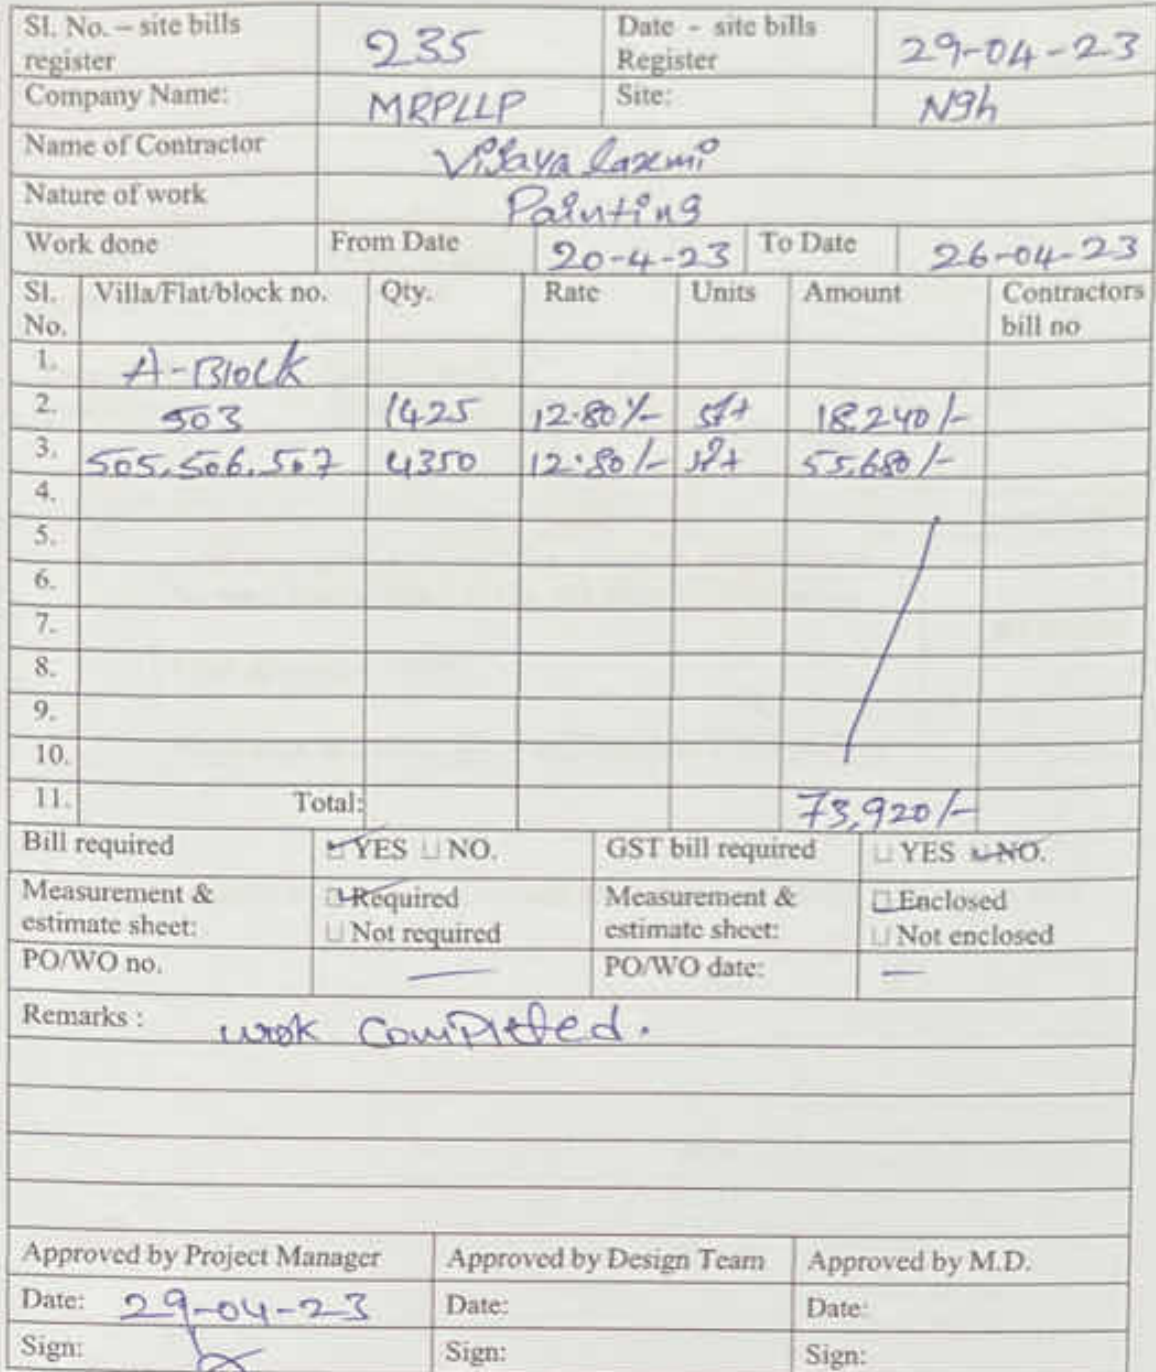 Sl. No. – site bills register 235 Date - site bills Register 29-04-23
Company Name: MRPLLP Site: N9h
Name of Contractor Vijaya laxmi
Nature of work Painting
Work done From Date 20-4-23 To Date 26-04-23
Sl. No. Villa/Flat/block no. Qty. Rate Units Amount Contractors bill no
1. A-Block
2. 503 1425 12.80/- sft 18,240/-
3. 505, 506, 507 4350 12.80/- sft 55,680/-
4.
5.
6.
7.
8.
9.
10.
11. Total: 73,920/-
Bill required YES NO. GST bill required YES NO.
Measurement & estimate sheet: Required Not required Measurement & estimate sheet: Enclosed Not enclosed
PO/WO no. — PO/WO date: —
Remarks : wrok completed.
Approved by Project Manager Approved by Design Team Approved by M.D.
Date: 29-04-23 Date: Date:
Sign: Sign: Sign: